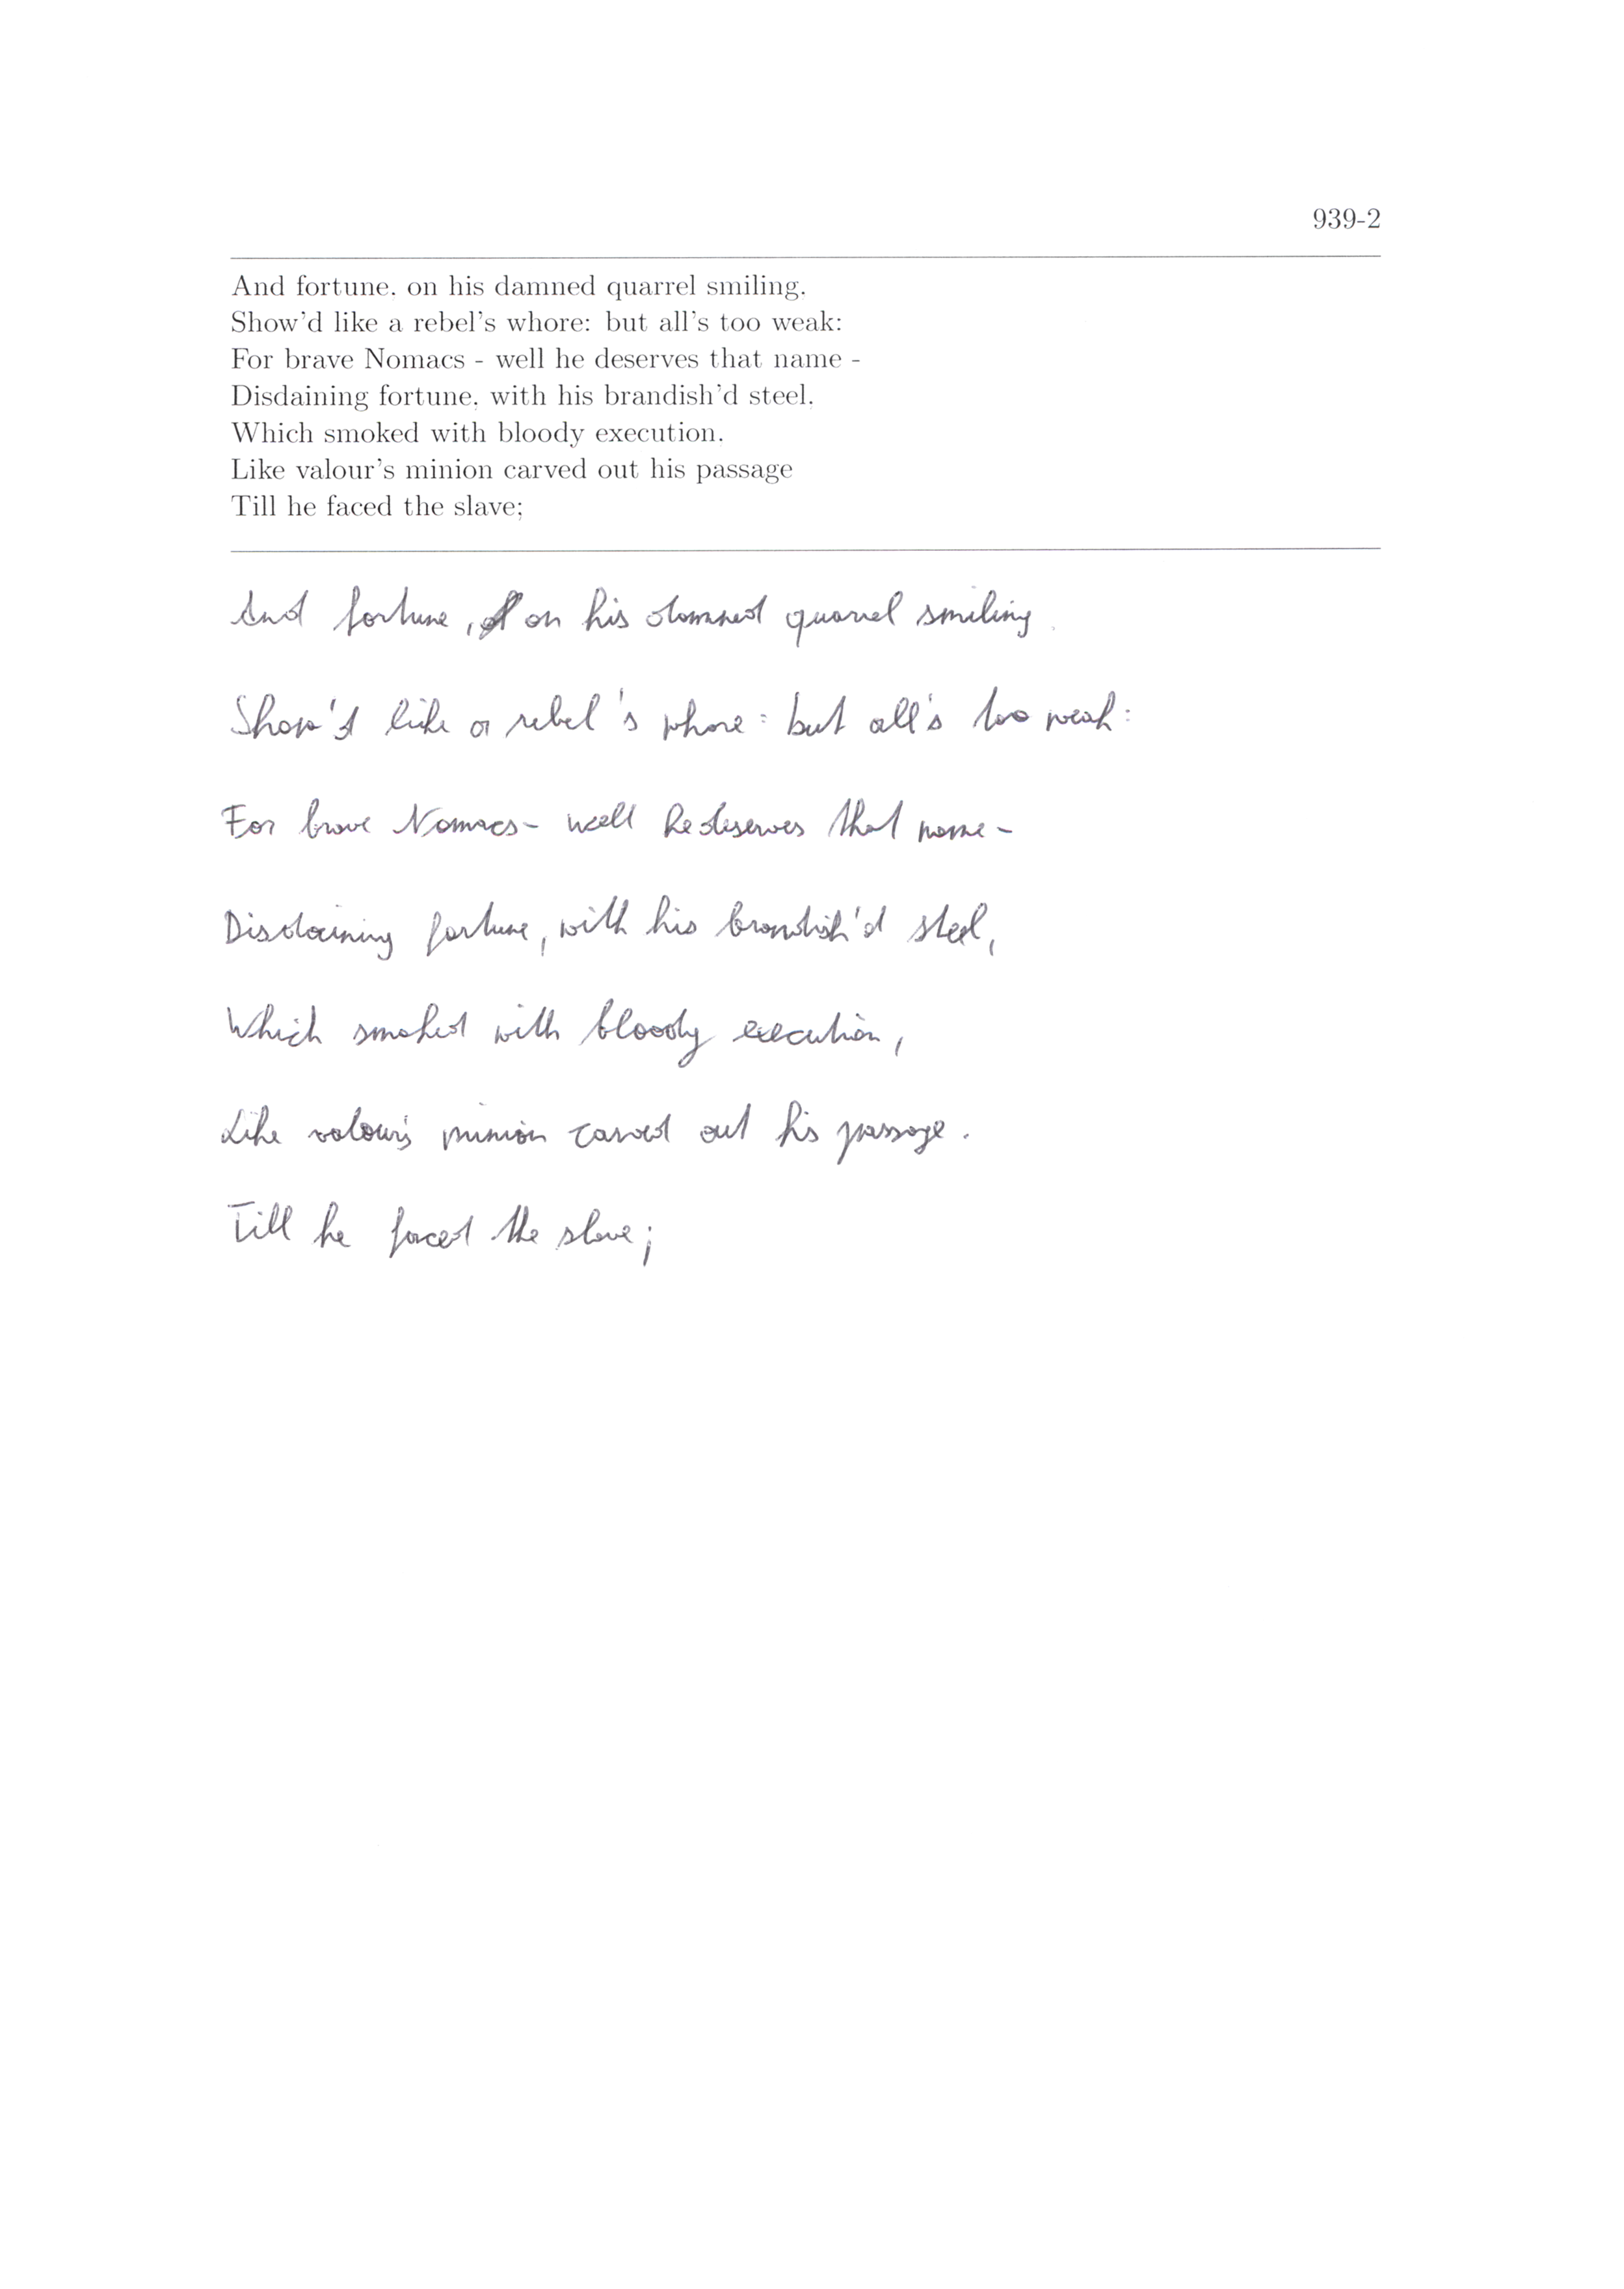 939-2
And fortune. on his damned quarrel smiling.
Show'd like a rebel's whore: but all's too weak:
For brave Nomacs - well he deserves that name -
Disdaining fortune. with his brandish'd steel.
Which smoked with bloody execution.
Like valour's minion carved out his passage
Till he faced the slave;
And fortune, on his damned quarrel smiling
Show'd like a rebel's whore: but all's too weak:
For brave Nomacs- well he deserves that name-
Disdaining fortune, with his brandish'd steel,
Which smoked with bloody execution,
Like valour's minion carved out his passage.
Till he faced the slave;